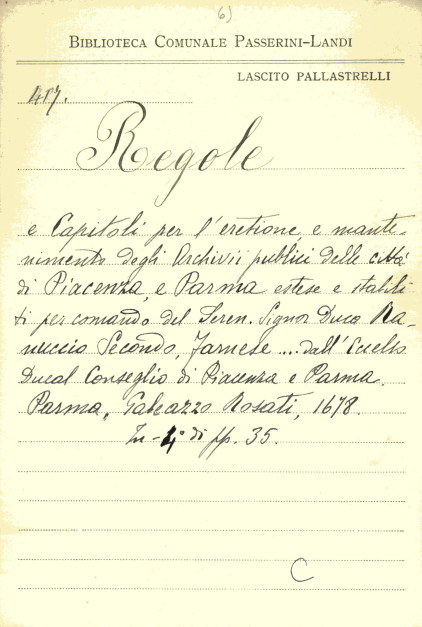 6)
BIBLIOTECA COMUNALE PASSERINI-LANDI
LASCITO PALLASTRELLI
417.
Regole
e Capitoli per l'eretione, e mante-
nimento degli Archivii publici delle città
di Piacenza, e Parma estese e stabili-
ti per comando del Seren. Signor Duca Ra-
nuccio Secondo, Farnese .... dall'Eccelso
Ducal Conseglio di Piacenza e Parma.
Parma, Galeazzo Rosati, 1678.
In-4° di pp. 35.
C